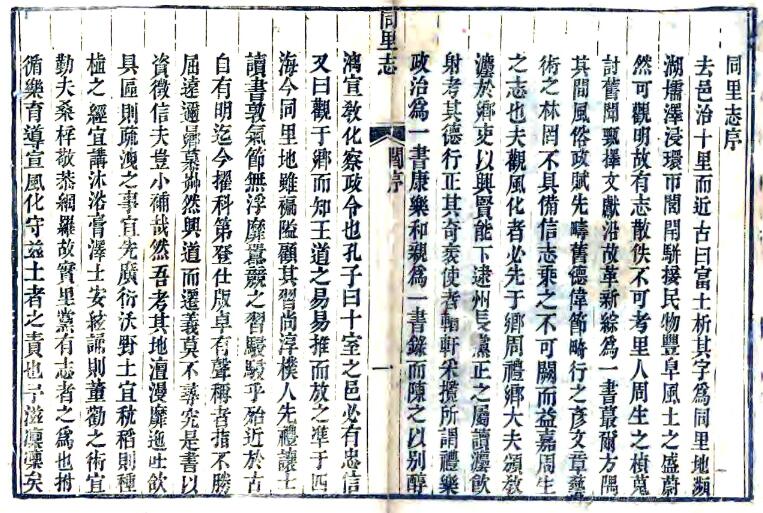 同里志序
去邑治十里而近古曰富土析其字為同里地瀕
湖壖澤浸環帀闤闠駢接民物豐阜風土之盛蔚
然可觀明故有志散佚不可考里人周生之楨蒐
討舊聞甄擇文獻沿故革新綜為一書蕞爾方隅
其間風俗政賦先疇舊德偉節畸行之彥文章藝
術之林罔不具備信志乘之不可闕而益嘉周生
之志也夫觀風化者必先于鄉周禮鄉大夫頒教
灋於鄉吏以興賢能下逮州長黨正之屬讀灋飲
射考其德行正其奇衺使者輶軒采攬所謂禮樂
政治為一書康樂和親為一書錄而陳之以別醇
同里志
閻序
一
漓宣教化察政令也孔子曰十室之邑必有忠信
又曰觀于鄉而知王道之易易推而放之準于四
海今同里地雖褊隘顧其習尚淳樸人先禮讓士
讀書敦氣節無浮靡囂競之習駸駸乎殆近於古
自有明迄今擢科第登仕版卓有聲稱者指不勝
屈遠邇嚮慕犇然興道而遷義莫不尋究是書以
資徵信夫豈小補哉然吾考其地澶漫靡迤吐欱
具區則疏洩之事宜先廣衍沃野土宜秔稻則種
植之經宜講沐浴膏澤士安絃誦則董勸之術宜
勤夫桑梓敬恭網羅故實里黨有志者之為也拊
循樂育導宣風化守茲土者之責也予滋凜凜矣